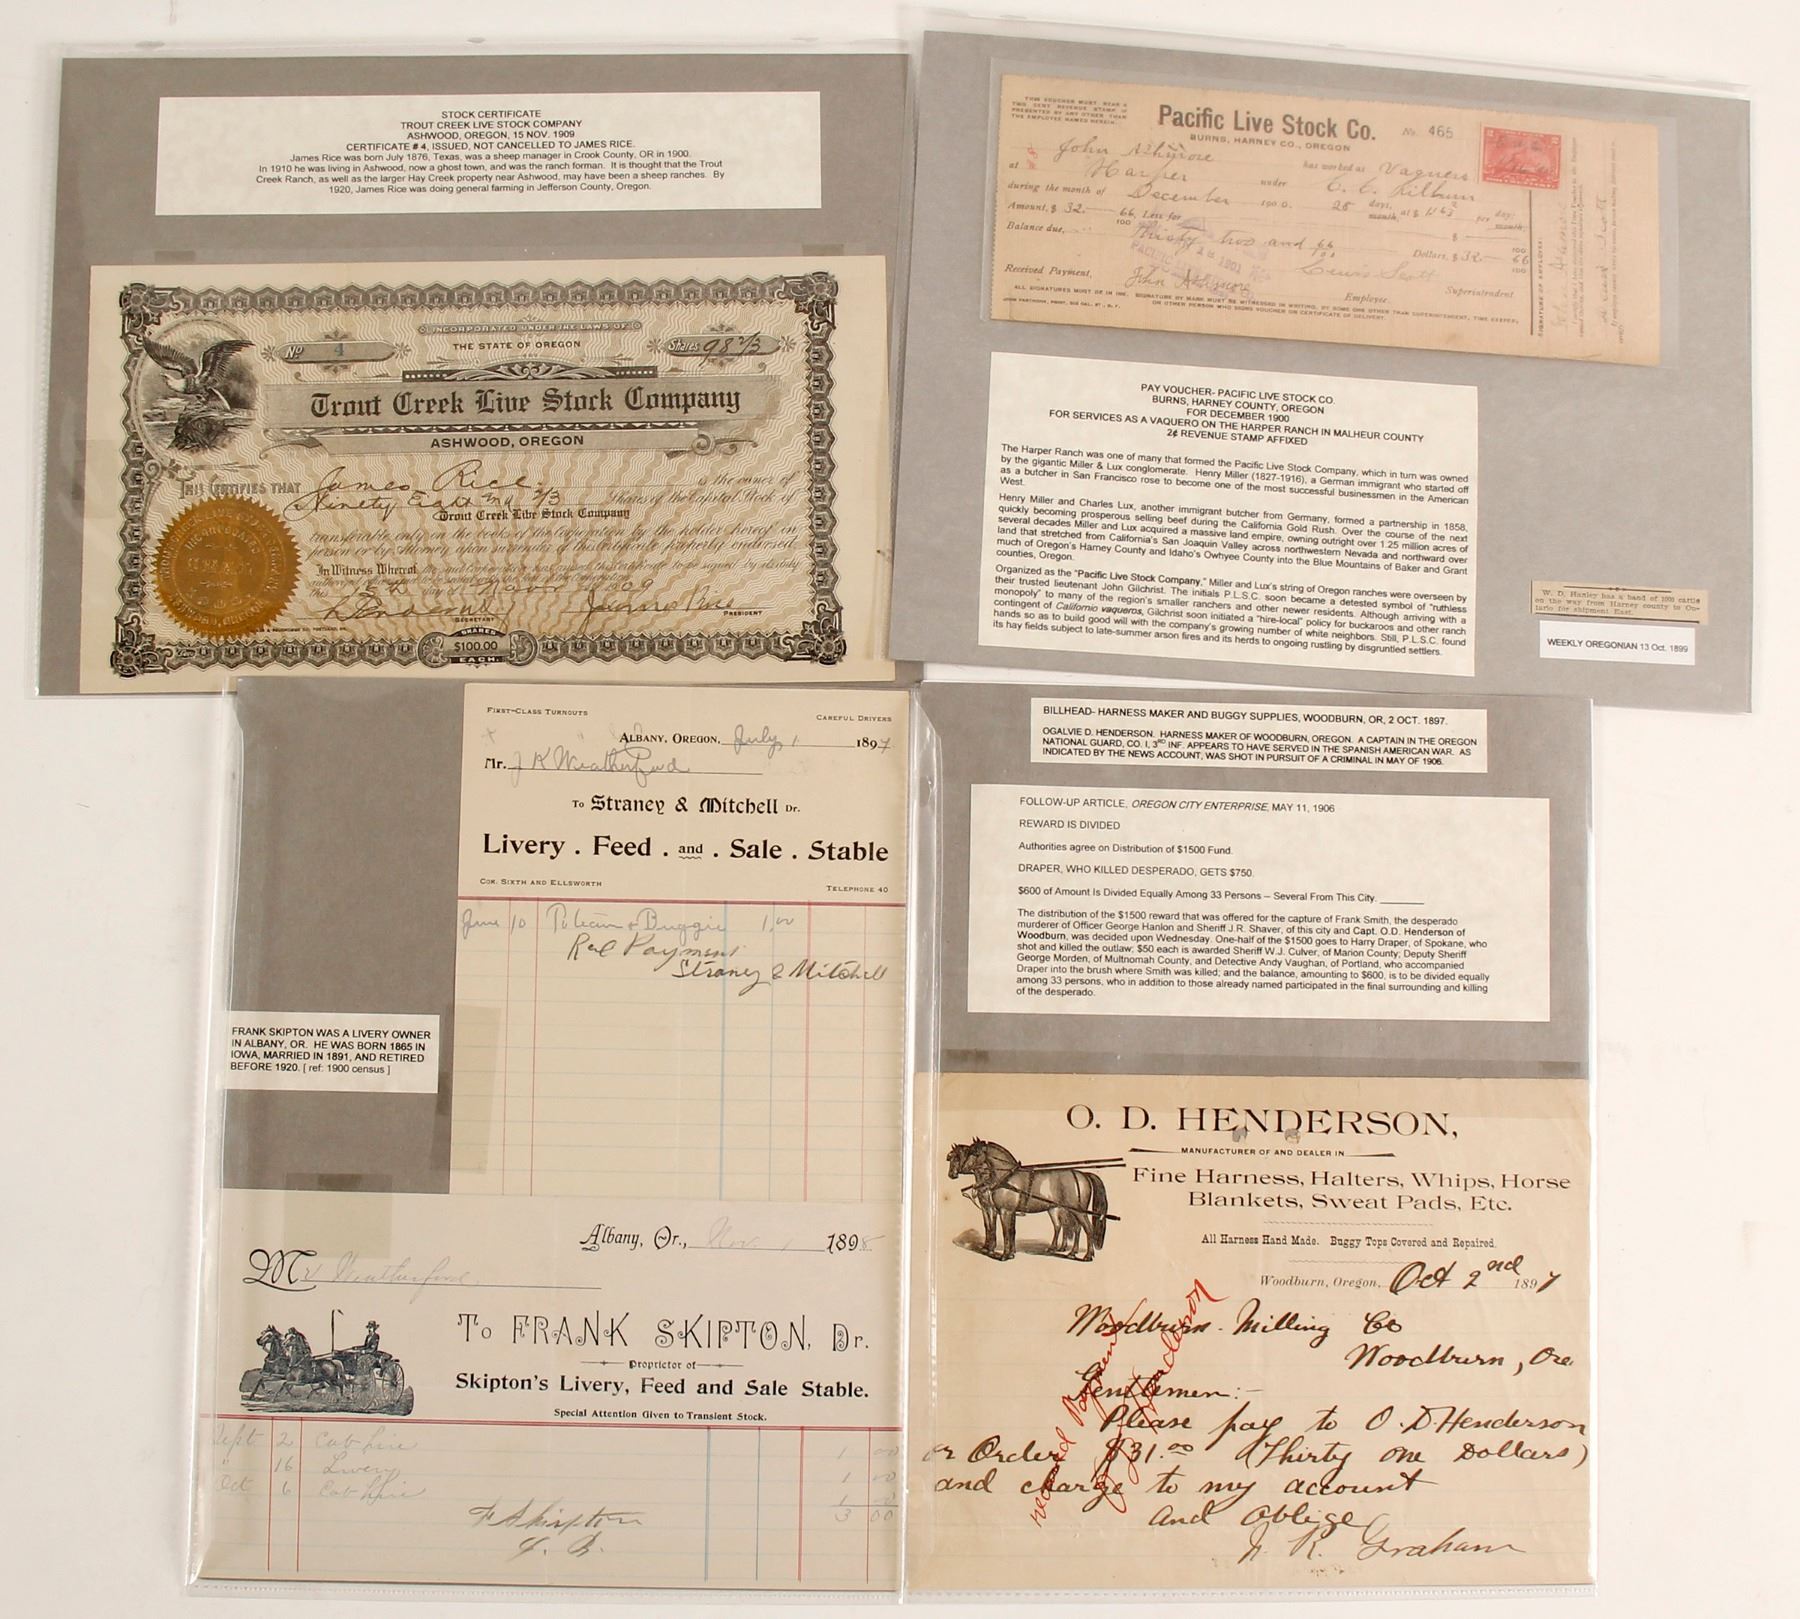 STOCK CERTIFICATE
TROUT CREEK LIVE STOCK COMPANY
ASHWOOD, OREGON, 15 NOV. 1909
CERTIFICATE # 4, ISSUED, NOT CANCELLED TO JAMES RICE.
James Rice was born July 1876, Texas, was a sheep manager in Crook County, OR in 1900.
In 1910 he was living in Ashwood, now a ghost town, and was the ranch forman. It is thought that the Trout
Creek Ranch, as well as the larger Hay Creek property near Ashwood, may have been a sheep ranches. By
1920, James Rice was doing general farming in Jefferson County, Oregon.
INCORPORATED UNDER THE LAWS OF
THE STATE OF OREGON
No 4
Shares 98 2/3
Trout Creek Live Stock Company
ASHWOOD, OREGON
THIS CERTIFIES THAT James Rice is the owner of
Ninety Eight and 2/3 Shares of the Capital Stock of
Trout Creek Live Stock Company
transferable only on the books of the Corporation by the holder hereof in
person or by Attorney upon surrender of this Certificate properly endorsed.
In Witness Whereof the said Corporation has caused this Certificate to be signed by its duly
authorized officers and to be sealed with the Seal of the Corporation
this 15th day of Nov 1909
James Rice
SECRETARY PRESIDENT
SHARES
$100.00
EACH
THIS VOUCHER MUST BEAR A
TWO CENT REVENUE STAMP IF
PRESENTED BY ANY OTHER THAN
THE EMPLOYEE NAMED HEREIN.
Pacific Live Stock Co.
No. 465
BURNS, HARNEY CO., OREGON
John Ashmore has worked as Vaquero
at Harper under C. C. Lilburn
during the month of December 1900. 28 days,
Amount, $ 32. 66/100 Less for
Balance due, Thirty two and 66/100 Dollars, $ 32 66/100
Lewis Scott
Received Payment, John Ashmore Employee. Superintendent
ALL SIGNATURES MUST BE IN INK. SIGNATURE BY MARK MUST BE WITNESSED IN WRITING, BY SOME ONE OTHER THAN SUPERINTENDENT, TIME-KEEPER,
OR OTHER PERSON WHO SIGNS VOUCHER ON CERTIFICATE OF DELIVERY.
SIGNATURE OF EMPLOYEE:
PAY VOUCHER- PACIFIC LIVE STOCK CO.
BURNS, HARNEY COUNTY, OREGON
FOR DECEMBER 1900
FOR SERVICES AS A VAQUERO ON THE HARPER RANCH IN MALHEUR COUNTY
2¢ REVENUE STAMP AFFIXED
The Harper Ranch was one of many that formed the Pacific Live Stock Company, which in turn was owned
by the gigantic Miller & Lux conglomerate. Henry Miller (1827-1916), a German immigrant who started off
as a butcher in San Francisco rose to become one of the most successful businessmen in the American
West.
Henry Miller and Charles Lux, another immigrant butcher from Germany, formed a partnership in 1858,
quickly becoming prosperous selling beef during the California Gold Rush. Over the course of the next
several decades Miller and Lux acquired a massive land empire, owning outright over 1.25 million acres of
land that stretched from California's San Joaquin Valley across northwestern Nevada and northward over
much of Oregon's Harney County and Idaho's Owyhee County into the Blue Mountains of Baker and Grant
counties, Oregon.
Organized as the "Pacific Live Stock Company," Miller and Lux's string of Oregon ranches were overseen by
their trusted lieutenant John Gilchrist. The initials P.L.S.C. soon became a detested symbol of "ruthless
monopoly" to many of the region's smaller ranchers and other newer residents. Although arriving with a
contingent of Californio vaqueros, Gilchrist soon initiated a "hire-local" policy for buckaroos and other ranch
hands so as to build good will with the company's growing number of white neighbors. Still, P.L.S.C. found
its hay fields subject to late-summer arson fires and its herds to ongoing rustling by disgruntled settlers.
W. D. Hanley has a band of 1000 cattle
on the way from Harney county to On-
tario for shipment East.
WEEKLY OREGONIAN 13 Oct. 1899
FIRST-CLASS TURNOUTS CAREFUL DRIVERS
ALBANY, OREGON, July 1 1897
Mr. J K Weatherford
To Straney & Mitchell Dr.
Livery . Feed . and . Sale . Stable
COR. SIXTH AND ELLSWORTH TELEPHONE 40
June 10 To team & Buggie 1.00
Rec Payment
Straney & Mitchell
FRANK SKIPTON WAS A LIVERY OWNER
IN ALBANY, OR. HE WAS BORN 1865 IN
IOWA, MARRIED IN 1891, AND RETIRED
BEFORE 1920. [ ref: 1900 census ]
Albany, Or., Nov. 1 1898
Mr Weatherford
To FRANK SKIPTON, Dr.
Proprietor of
Skipton's Livery, Feed and Sale Stable.
Special Attention Given to Transient Stock.
Sept 2 Cab hire 1 00
" 16 Livery 1 00
Oct 6 Cab hire 1 00
3 00
F Skipton
BILLHEAD- HARNESS MAKER AND BUGGY SUPPLIES, WOODBURN, OR, 2 OCT. 1897.
OGALVIE D. HENDERSON. HARNESS MAKER OF WOODBURN, OREGON. A CAPTAIN IN THE OREGON
NATIONAL GUARD, CO. I, 3RD INF. APPEARS TO HAVE SERVED IN THE SPANISH AMERICAN WAR. AS
INDICATED BY THE NEWS ACCOUNT, WAS SHOT IN PURSUIT OF A CRIMINAL IN MAY OF 1906.
FOLLOW-UP ARTICLE, OREGON CITY ENTERPRISE, MAY 11, 1906
REWARD IS DIVIDED
Authorities agree on Distribution of $1500 Fund.
DRAPER, WHO KILLED DESPERADO, GETS $750.
$600 of Amount Is Divided Equally Among 33 Persons – Several From This City. ________
The distribution of the $1500 reward that was offered for the capture of Frank Smith, the desperado
murderer of Officer George Hanlon and Sheriff J.R. Shaver, of this city and Capt. O.D. Henderson of
Woodburn, was decided upon Wednesday. One-half of the $1500 goes to Harry Draper, of Spokane, who
shot and killed the outlaw; $50 each is awarded Sheriff W.J. Culver, of Marion County; Deputy Sheriff
George Morden, of Multnomah County, and Detective Andy Vaughan, of Portland, who accompanied
Draper into the brush where Smith was killed; and the balance, amounting to $600, is to be divided equally
among 33 persons, who in addition to those already named participated in the final surrounding and killing
of the desperado.
O. D. HENDERSON,
MANUFACTURER OF AND DEALER IN
Fine Harness, Halters, Whips, Horse
Blankets, Sweat Pads, Etc.
All Harness Hand Made. Buggy Tops Covered and Repaired.
Woodburn, Oregon, Oct 2nd 1897
Woodburn Milling Co
Woodburn, Ore
Gentlemen:-
Please pay to O. D. Henderson
or Order $31.00 (Thirty one Dollars)
and charge to my account
and oblige
J. R. Graham
received Payment
O. D. Henderson